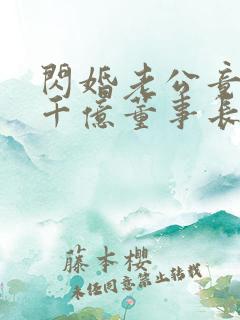 閃婚老公竟
千億董事長
藤本櫻
未經同意禁止轉載